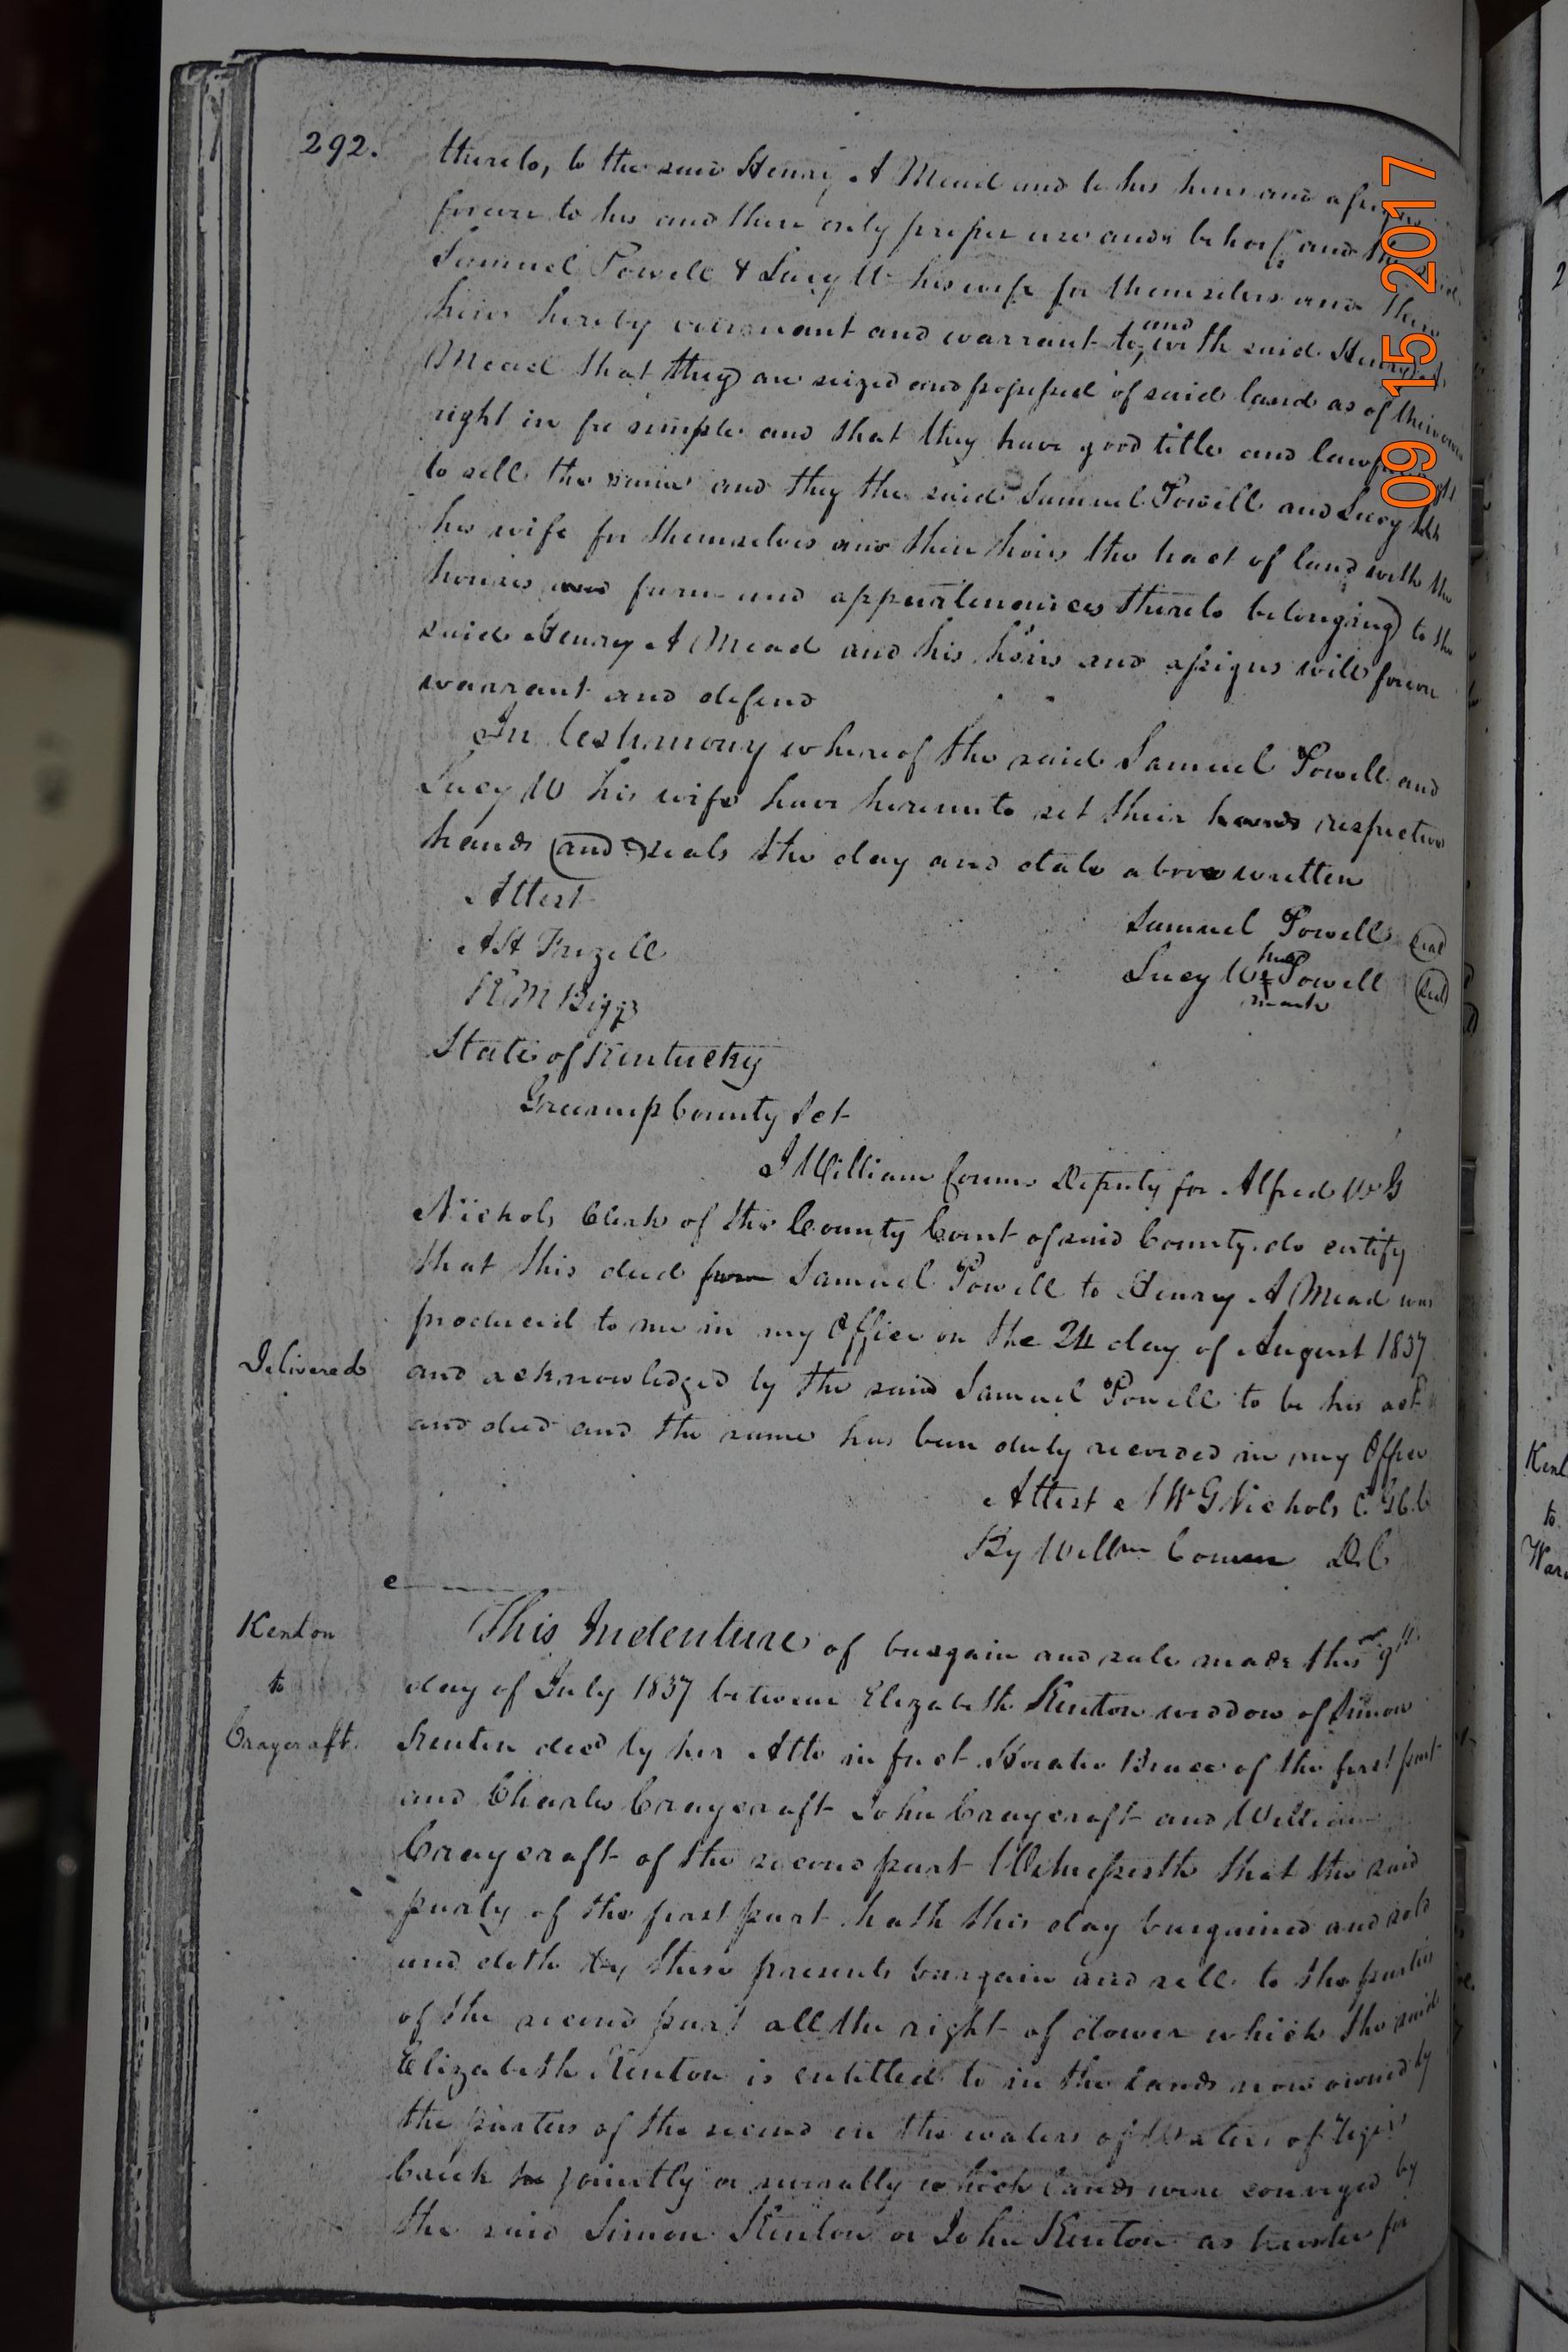 292.
thereto, to the said Henry A Mead and to his heirs and assigns
forever to his and there only proper use and behoof and the said
Samuel Powell & Lucy W his wife for themselves and their
heirs hereby covenant and warrant to, and with said Henry A
Mead that they are seized and possessed of said land as of their own
right in fee simple and that they have good title and lawful right
to sell the same and they the said Samuel Powell and Lucy W
his wife for themselves and their heirs the tract of land with the
houses and farm and appurtenances thereto belonging to the
said Henry A Mead and his heirs and assigns will forever
warrant and defend
In testimony whereof the said Samuel Powell and
Lucy W his wife have hereunto set their hands respective
hands and seals the day and date above written
Attest
Samuel Powell seal
A H Frizell
Lucy W her + mark Powell seal
R M Biggs
State of Kentucky
Greenup County Sct
I William Corum Deputy for Alfred W G
Nichols Clerk of the County Court of said County do certify
that this deed from Samuel Powell to Henry A Mead was
produced to me in my Office on the 24 day of August 1837
Delivered
and acknowledged by the said Samuel Powell to be his act
and deed and the same has been duly recorded in my Office
Attest A W G Nichols C. G C. C
By Willm Corum D. C
Kenton
to
Craycraft.
This Indenture of bargain and sale made this 9th
day of July 1837 between Elizabeth Kenton widdow of Simon
Kenton decd by her Atto in fact Horatio Bruce of the first part
and Charles Craycraft John Craycraft and William
Craycraft of the second part Witnesseth that the said
party of the first part hath this day bargained and sold
and doth by these presents bargain and sell to the parties
of the second part all the right of dower which the said
Elizabeth Kenton is entitled to in the lands now owned by
the parties of the second on the waters of Waters of
Creek jointly or severally which lands were conveyed by
the said Simon Kenton or John Kenton as trustee for
09 15 2017
Kent
to